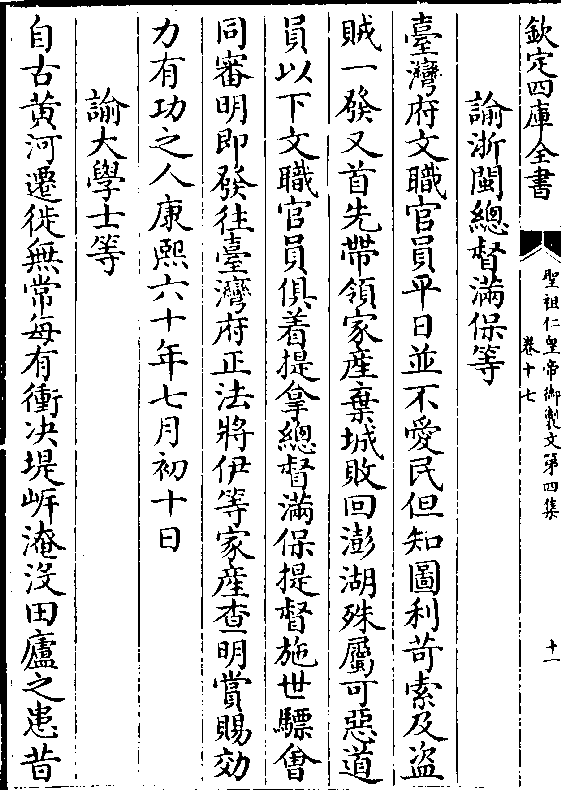 欽定四庫全書
聖祖仁皇帝御製文第四集
卷十七
十一
諭浙閩總督滿保等
臺灣府文職官員平日並不愛民但知圖利苛索及盜
賊一發又首先帶領家産棄城敗回澎湖殊屬可惡道
員以下文職官員俱着提拿總督滿保提督施世驃會
同審明即發往臺灣府正法將伊等家産查明賞賜効
力有功之人康熙六十年七月初十日
諭大學士等
自古黄河遷徙無常每有衝决堤岍淹没田廬之患昔